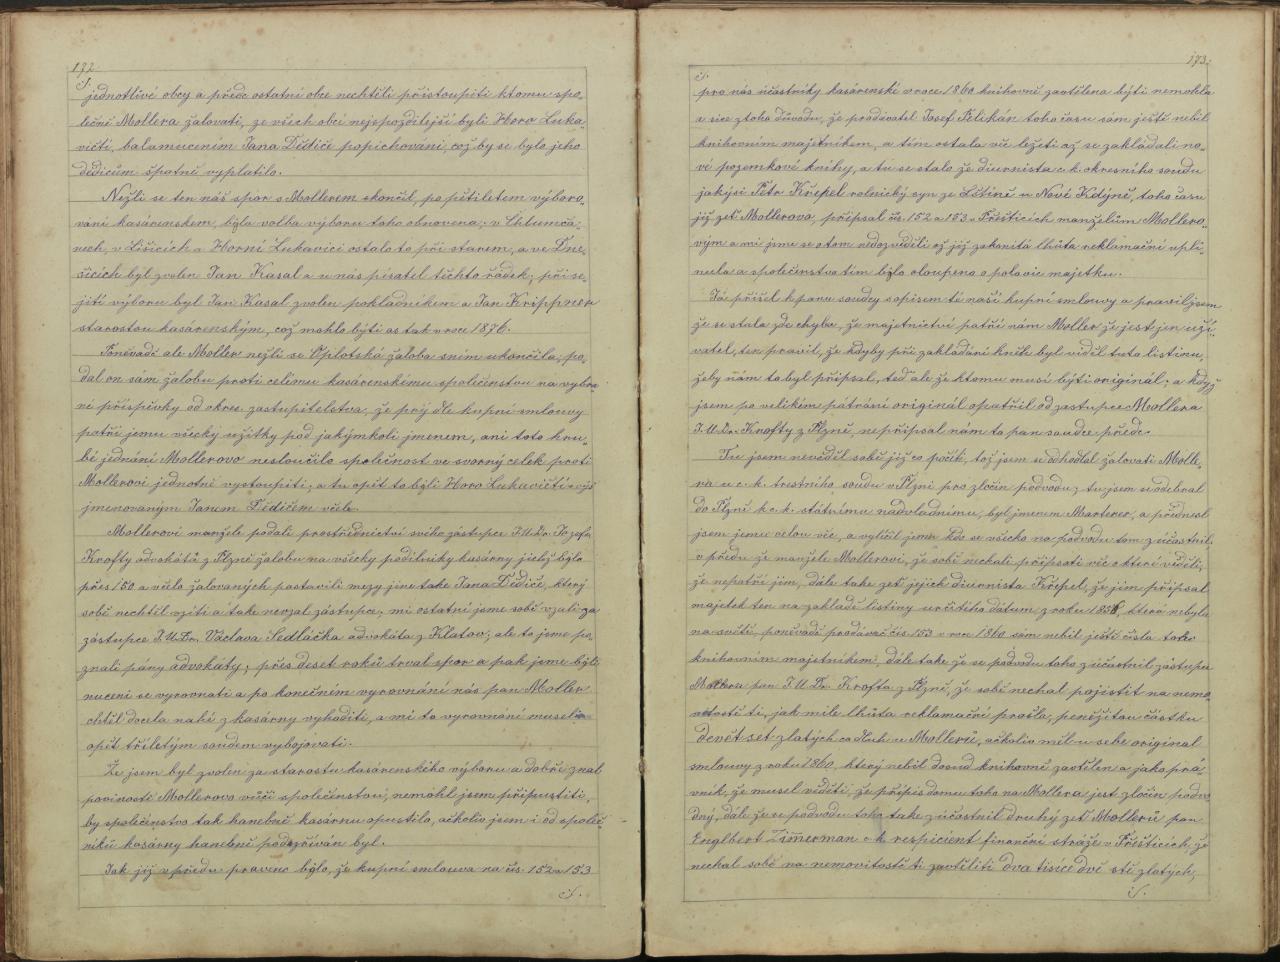 172.
jednotlivé obcy a přede ostatní obce nechtěli přistoupiti ktomu spo-
lečně Mollera žalovati, ze všech obcí nejspozdilejší byli Horo Luka-
vičtí, balamucením Jana Dědiče popichovaní, což by se bylo jeho
dědicům špatně vyplatilo.
Nežli se ten náš spor s Mollerem skončil, po pětiletém výboro-
vání kasárenském, býla volba výboru toho obnovena; v Chlumča-
nech, v Lišicích a Horní Lukavici ostalo to při starém, a ve Dne-
šicích byl zvolen Jan Kasal a u nás pisatel těchto řádek; při se-
jití výboru byl Jan Kasal zvolen pokladníkem a Jan Krippner
starostou kasárenským, což mohlo býti as tak v roce 1876.
Poněvadž ale Moller nežli se Oplotská žaloba sním ukončila, po-
dal on sám žalobu proti celému kasárenskému společenstvu na vybra-
né příspěvky od okres. zastupitelstva, že prý dle kupní smlouvy
patří jemu všecky užitky pod jakýmkoli jmenem, ani toto hru-
bé jednání Mollerovo nesloučilo společnost ve svorný celek proti
Mollerovi jednotně vystoupiti; a tu opět to býli Horo Lukavičtí výš
jmenovaným Janem Dědičem včele.
Mollerovi manžele podali prostřednictví svého zástupce J.U.Dr. Jozefa
Krofty advokáta z Plzně žalobu na všecky podílníky kasárny jichž bylo
přes 150 a včelo žalovaných postavili mezy jine take Jana Dědiče, který
sobě nechtěl vzíti a take nevzal zástupce, mi ostatní jsme sobě vzali za
zástupce J.U.Dr. Václava Sedláčka advokáta z Klatov; ale to jsme po-
znali pány advokáty; přes deset roků trval spor a pak jsme býli
nuceni se vyrovnati a po konečném vyrovnání nás pan Moller
chtěl docela nahé z kasárny vyhoditi, a mi to vyrovnání museli
opět tříletým soudem vybojovati.
Že jsem byl zvolen za starostu kasárenského výboru a dobře znal
povinosti Mollerovo vůči společenstvu, nemohl jsem připustiti,
by společenstvo tak hanebně kasárnu opustilo, ačkoliv jsem i od společ-
níků kasárny hanebně podezříván byl.
Jak již vpředu praveno býlo, že kupní smlouva na čís. 152 a 153
173.
pro nás účastníky kasárenské v roce 1860 knihovně zavtělena býti nemohla
a sice ztoho důvodu, že prodávatel Josef Pelikán toho času sám ještě nebil
knihovním majetníkem, a tím ostala věc ležeti až se zakládali no-
vé pozemkové knihy, a tu se stalo že diurnista c.k. okresního soudu
jakýsi Petr Křepel rolnický syn ze Loštině u Nové Kdýně, toho času
již zeť Mollerovo, připsal čís. 152 a 153 v Přešticích manželům Mollero-
vým a mi jsme se o tom nedozvěděli až již zakonitá lhůta reklamační upli-
nula a společenstvo tím bylo oloupeno o polovic majetku.
Já přišel k panu soudcy sopisem té naší kupní smlouvy a pravil jsem
že se stala zde chyba, že majetnictví patří nám Moller že jest jen uží-
vatel, ten pravil, že kdyby při zakládání kněh byl viděl tuto listinu,
žeby nám to byl připsal, teď ale že ktomu musí býti originál; a když
jsem po velikém pátrání originál opatřil od zastupce Mollera
J.U.Dr. Krofty z Plzně, nepřipsal nám to pan soudce přede.
Tu jsem nevěděl sobě již co počíti, tož jsem se odhodlal žalovati Molle-
ra u c.k. trestního soudu v Plzni pro zločin podvodu; tu jsem se odebral
do Plzně k c.k. státnímu nádvladnímu, byl jmenem Marterer, a přednesl
jsem jemu celou věc, a vylíčil jemu kdo se všecko na podvodu tom zúčastnil.
v předu že manžele Mollerovi, že sobě nechali připsati věc o které věděli,
že nepatří jim, dále take zeť jejich diurnista Křepel, že jim připsal
majetek ten na zakladě listiny určitého dátum z roku 1858, která nebyla
na světě, poněvadž prodávač čís 153 v roce 1860 sám nebil ještě čísla toho
knihovním majetníkem, dále take že se podvodu toho zúčastnil zástupce
Mollera pan J.U.Dr. Krofta z Plzně, že sobě nechal pojistit na nemo-
vitostě ti, jak mile lhůta reklamační prošla, peněžitou částku
devět set zlatých co dluh u Mollerů, ačkoliv měl u sebe original
smlouvy z roku 1860, který nebil dosud knihovně zavtělen a jako prá-
vník, že musel věděti, že připis domu toho na Mollera jest zločin podvo-
dný, dále že se podvodu toho take zúčastnil druhý zeť Mollerů pan
Englbert Zimerman c k respicient finanční stráže v Přešticích, že
nechal sobě na nemovitostě ti zavtěliti dva tisíce dvě stě zlatých,